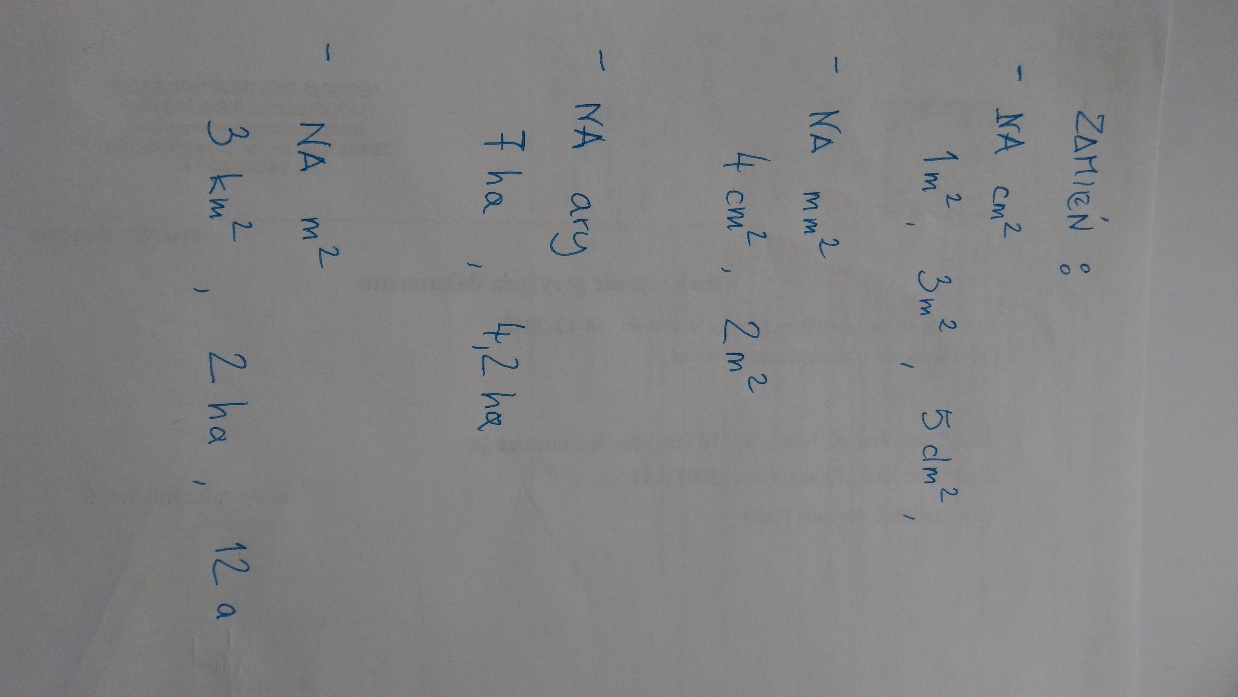 ZAMIEŃ :
- NA cm²
1 m² , 3 m² , 5 dm² ,
- NA mm²
4 cm² , 2 m²
- NA ary
7 ha , 4,2 ha
- NA m²
3 km² , 2 ha , 12 a